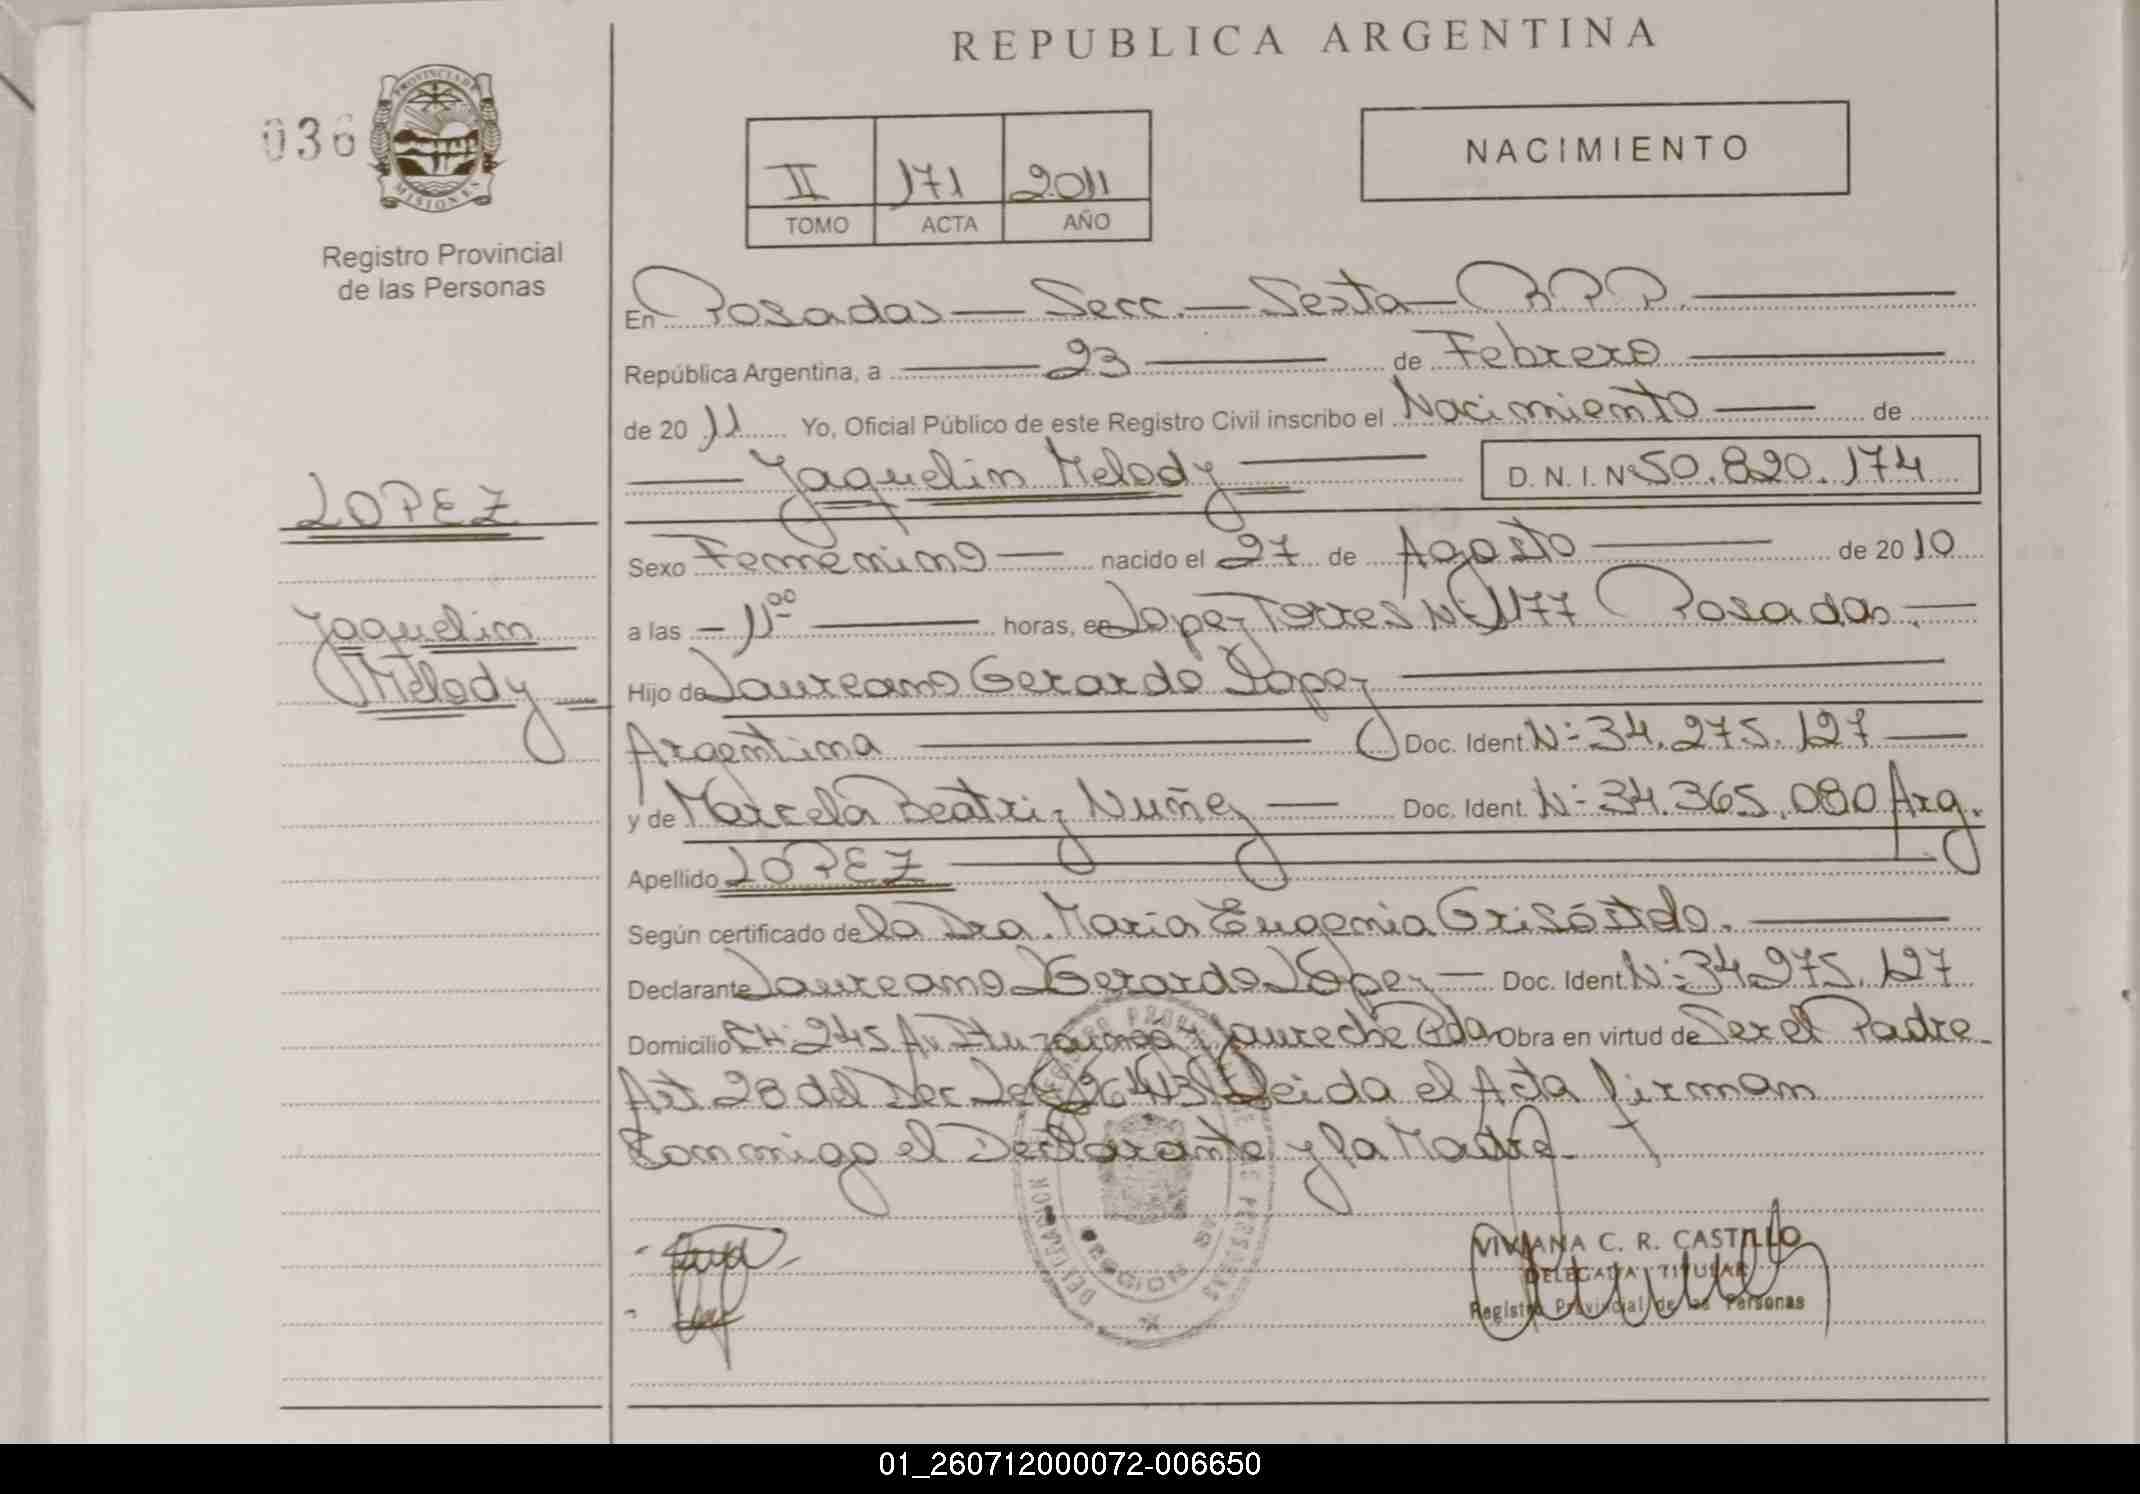 REPUBLICA ARGENTINA
036
PROVINCIA DE
MISIONES
Registro Provincial
de las Personas
II 171 2011
TOMO ACTA AÑO
NACIMIENTO
En Posadas — Secc. — Sexta — RPP.
República Argentina, a 23 de Febrero
de 20 11 Yo, Oficial Público de este Registro Civil inscribo el Nacimiento de
Jaquelin Melody D. N. I. Nº 50.820.174
LOPEZ
Jaquelin
Melody
Sexo Femenino nacido el 27 de Agosto de 20 10
a las 11⁰⁰ horas, en Lopez Torres Nº 1177 Posadas.
Hijo de Laureano Gerardo Lopez
Argentina Doc. Ident. Nº 34.275.127
y de Marcela Beatriz Nuñez Doc. Ident. Nº 34.365.080 Arg.
Apellido LOPEZ
Según certificado de la Dra. Maria Eugenia
Declarante Laureano Gerardo López Doc. Ident Nº 34275.127
Domicilio CH: 245 Av Ituzaingó y Jaureche Pdas Obra en virtud de Ser el Padre
Art 28 del Dec Ley 26413 Leida el Acta firman
Conmigo el Declarante y la Madre.
REGISTRO PROVINCIAL DE LAS PERSONAS
DELEGACION
SECCION 6a
VIVIANA C. R. CASTILLO
DELEGADA TITULAR
Registro Provincial de las Personas
01_260712000072-006650